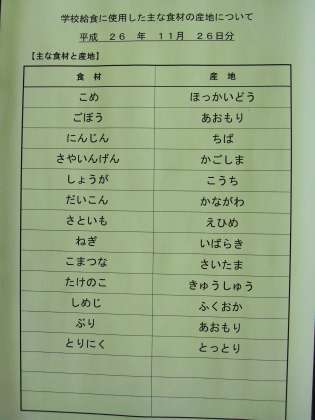 学校給食に使用した主な食材の産地について
平成 26 年 11月 26日分
【主な食材と産地】
食材 産地
こめ ほっかいどう
ごぼう あおもり
にんじん ちば
さやいんげん かごしま
しょうが こうち
だいこん かながわ
さといも えひめ
ねぎ いばらき
こまつな さいたま
たけのこ きゅうしゅう
しめじ ふくおか
ぶり あおもり
とりにく とっとり